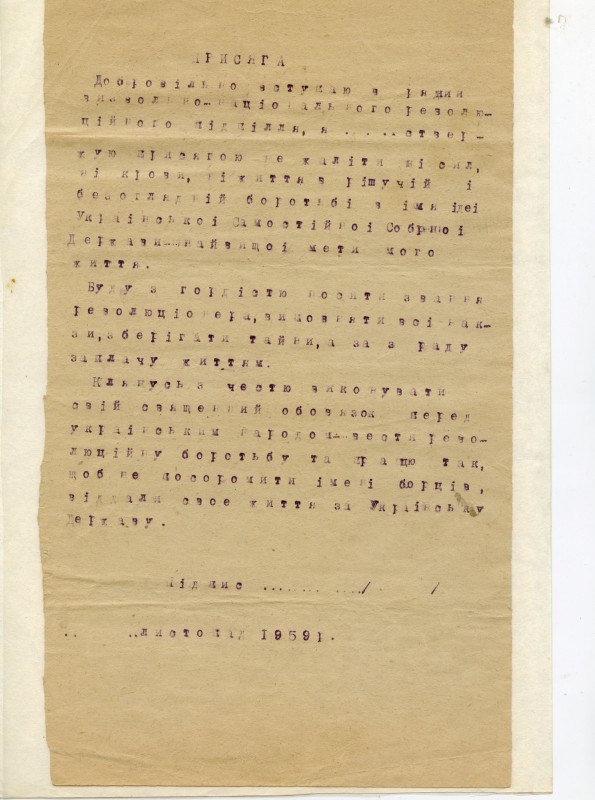 ПРИСЯГА
Добровільно вступаю в ряди
визвольно-національного револю-
ційного підпілля, я ......ствер-
жую присягою не жаліти ні сил,
ні крови, ні життя в рішучій і
безоглядній боротьбі в імя ідеі
Української Самостійної Собрноі
Держави—найвищоі мети мого
життя.
Буду з гордістю носити звання
революціонера, виповняти всі нак-
зи, зберігати тайни, а за з раду
заплачу життям.
Клянусь з честю виконувати
свій священний обовязок перед
українським народом—вести рево-
люційну боротьбу та працю так,
щоб не посоромити імені борців,
віддали свое життя за Українську
Державу.
Підпис ............./ /
.. ..листопад 1959р.